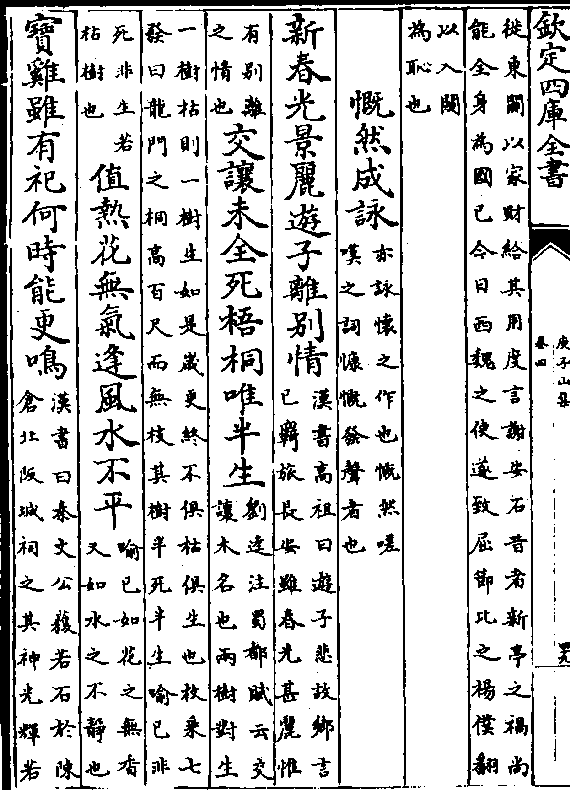 欽定四庫全書
庾子山集
卷四
從東關以家財給其用度言謝安石昔者新亭之禍尚
能全身為國已今日西魏之使遂致屈節比之楊僕翻
以入關
為恥也
慨然成詠
亦詠懷之作也慨然嗟
嘆之詞慷慨發聲者也
新春光景麗遊子離别情
漢書高祖曰遊子悲故鄉言
已羈旅長安雖春光甚麗惟
有别離
之情也
交讓未全死梧桐唯半生
劉逵注蜀都賦云交
讓木名也兩樹對生
一樹枯則一樹生如是歲更終不俱枯俱生也枚乗七
發曰龍門之桐高百尺而無枝其樹半死半生喻已非
死非生若
枯樹也
值熱花無氣逢風水不平
喻已如花之無香
又如水之不靜也
寶雞雖有祀何時能更鳴
漢書曰秦文公獲若石於陳
倉北阪城祠之其神光輝若